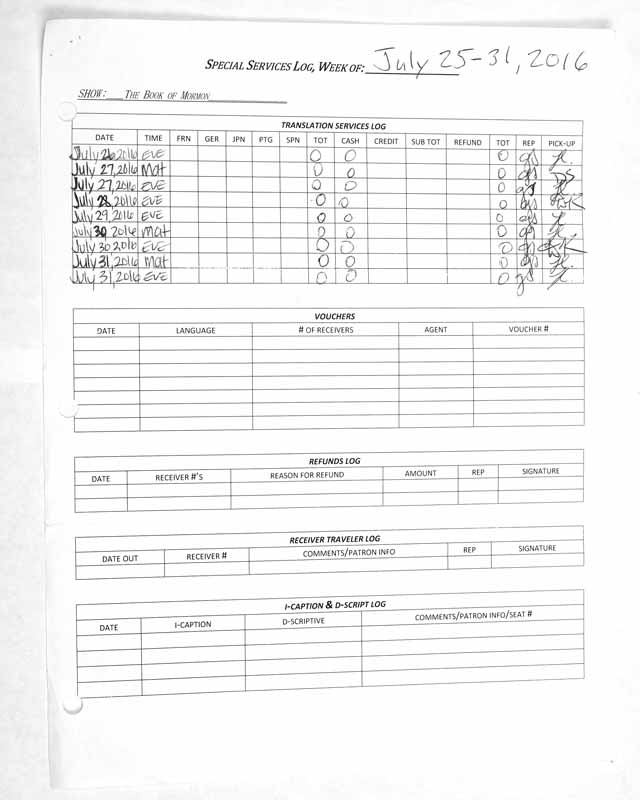 SPECIAL SERVICES LOG, WEEK OF: July 25-31, 2016
SHOW: THE BOOK OF MORMON
TRANSLATION SERVICES LOG
DATE TIME FRN GER JPN PTG SPN TOT CASH CREDIT SUB TOT REFUND TOT REP PICK-UP
July 26 2016 EVE 0 0 0 gs
July 27, 2016 Mat 0 0 0 gs DS
July 27, 2016 EVE 0 0 0 gs
July 28, 2016 EVE 0 0 0 gs
July 29, 2016 EVE 0 0 0 gs
July 30 2016 Mat 0 0 0 gs
July 30 2016 EVE 0 0 0 gs
July 31, 2016 Mat 0 0 0 gs
July 31, 2016 EVE 0 0 0 gs
VOUCHERS
DATE LANGUAGE # OF RECEIVERS AGENT VOUCHER #
REFUNDS LOG
DATE RECEIVER #'S REASON FOR REFUND AMOUNT REP SIGNATURE
RECEIVER TRAVELER LOG
DATE OUT RECEIVER # COMMENTS/PATRON INFO REP SIGNATURE
I-CAPTION & D-SCRIPT LOG
DATE I-CAPTION D-SCRIPTIVE COMMENTS/PATRON INFO/SEAT #